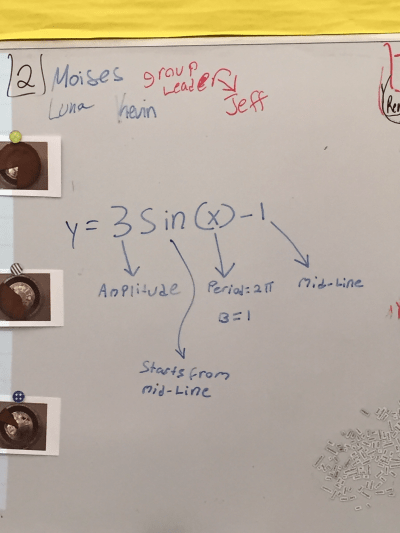 [2] Moises
group
Leader
Luna Kevin
Jeff
y = 3 Sin (x) - 1
Amplitude
Period: 2π
B = 1
Mid-Line
Starts from
mid-Line